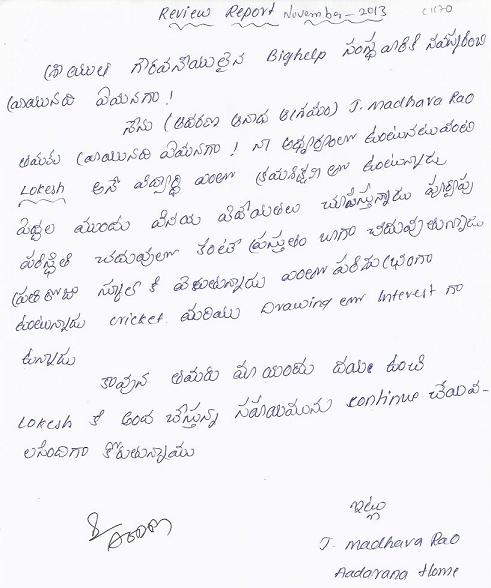 Review Report November-2013
C1170
శ్రీయుత గౌరవనీయులైన Bighelp సంస్థ వారికి నమస్కరించి
వ్రాయునది ఏమనగా!
నేను (ఆదరణ అనాధ ఆశ్రమం) J. Madhava Rao
తమకు వ్రాయునది ఏమనగా! నా ఆధ్వర్యంలో ఉంటున్నటువంటి
Lokesh అనే విద్యార్థి ఎంతో క్రమశిక్షణ తో ఉంటున్నాడు
పెద్దల ముందు వినయ విధేయతలు చూపిస్తున్నాడు పూర్వపు
పరిస్థితి చదువులో కంటే ప్రస్తుతం బాగా చదువుతున్నాడు
ప్రతిరోజు స్కూల్ కి వెళుతున్నాడు ఎంతో పరిశుభ్రంగా
ఉంటున్నాడు cricket మరియు Drawing అంటే Interest గా
ఉన్నాడు
కావున తమరు మా యందు దయ ఉంచి
Lokesh కి అంద చేస్తున్న సహాయమును continue చేయవ-
లసిందిగా కోరుతున్నాము
ఇట్లు
J. Madhava Rao
Aadarana Home